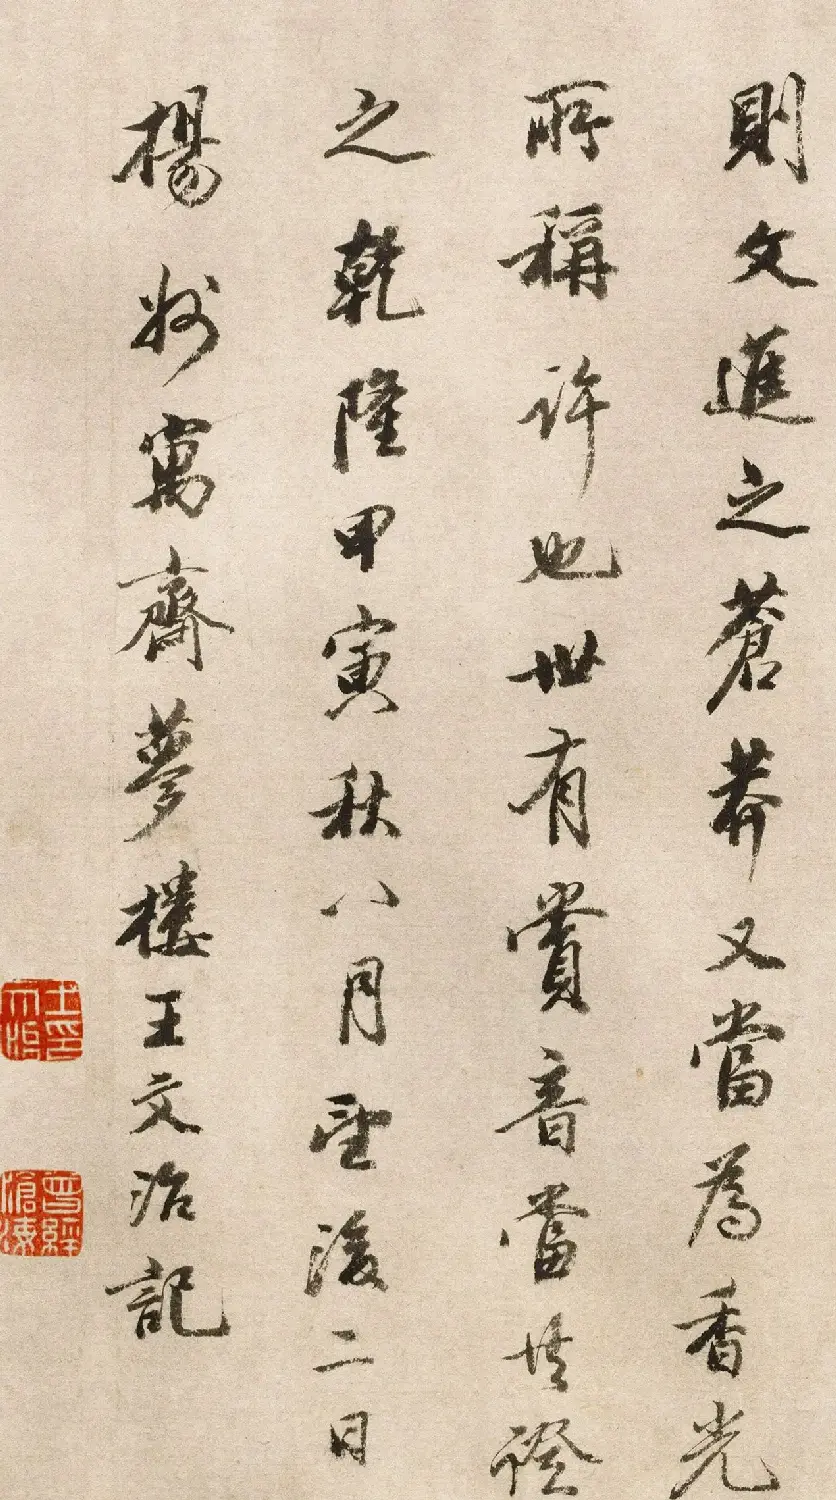 則文進之蒼莽又當為香光
所稱許也世有賞音當共證
之乾隆甲寅秋八月望後二日
楊州寓齋夢樓王文治記
王文治印
曾經滄海